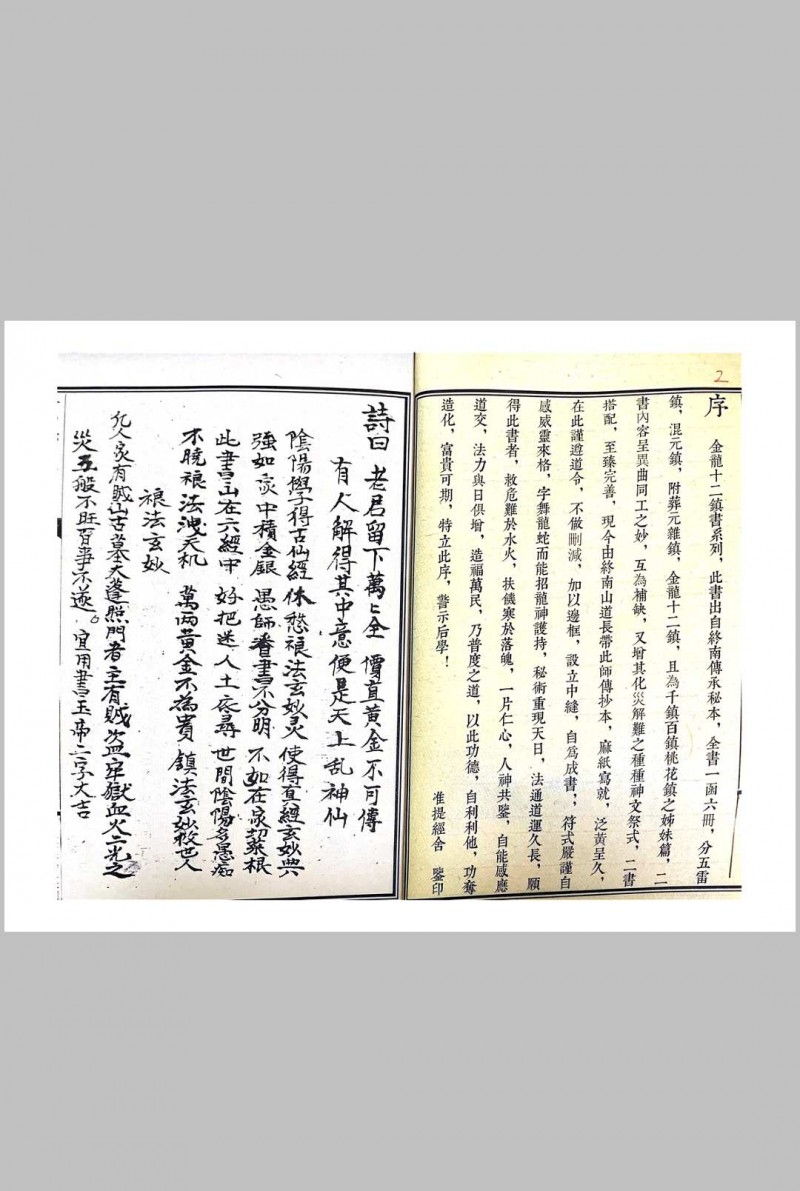 2
序
金龍十二鎮書系列，此書出自終南傳承秘本，全書一函六冊，分五雷
鎮，混元鎮，附葬元雜鎮，金龍十二鎮，且為千鎮百鎮桃花鎮之姊妹篇，二
書內容呈異曲同工之妙，互為補缺，又增其化災解難之種種神文祭式，二書
搭配，至臻完善，現今由終南山道長帶此師傳抄本，麻紙寫就，泛黃呈久，
在此謹遵道令，不做刪減，加以邊框，設立中縫，自為成書，；符式嚴謹自
感威靈來格，字舞龍蛇而能招龍神護持，秘術重現天日，法通道運久長，願
得此書者，救危難於水火，扶饑寒於落魄，一片仁心，人神共鑒，自能感應
道交，法力與日俱增，造福萬民，乃普度之道，以此功德，自利利他，功奪
造化，富貴可期，特立此序，警示后學！
准提經舍　鑒印
詩曰　老君留下萬〻全　價直黃金不可傳
有人解得其中意便是天上乱神仙
陰陽學得古仙經　休愁禳法玄妙灵　使得真經玄妙典
強如家中積金銀　愚師看書不分明　不如在家切菜根
此書出在六經中　好把迷人土底尋　世間陰陽多愚痴
不曉禳法洩天机　萬兩黃金不為貴　鎮法玄妙救世人
禳法玄妙
凡人家有賊山古墓天蓬照門者主有賊盜牢獄血火二光之
災五般不旺百事不遂。宜用書玉帝二字大吉